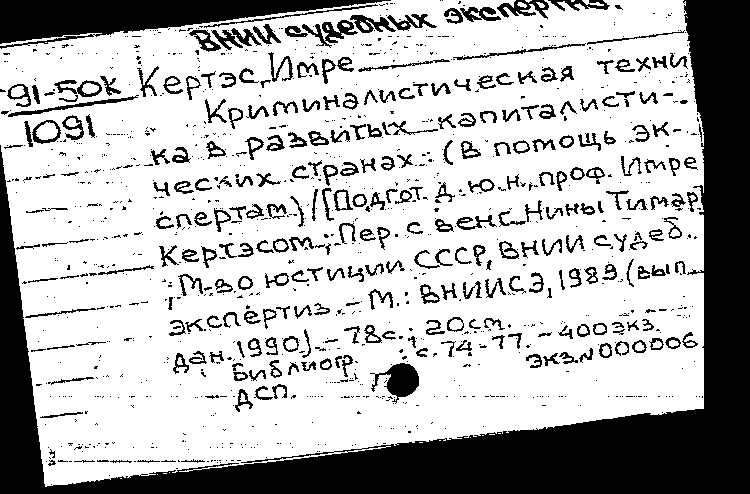 ВНИИ судебных экспертиз.
91-50к Кертэс, Имре
1091 Криминалистическая техни
ка в развитых капиталисти-
ческих странах : (В помощь эк-
спертам) / [Подгот. д. ю. н., проф. Имре
Кертэсом ; Пер. с венг. Нины Тимар]
; М-во юстиции СССР, ВНИИ судеб.
экспертиз. - М. : ВНИИСЭ, 1989 (вып.
дан. 1990). - 78с. ; 20см.
Библиогр. : с. 74-77. - 400 экз.
ДСП. экз. N 000006